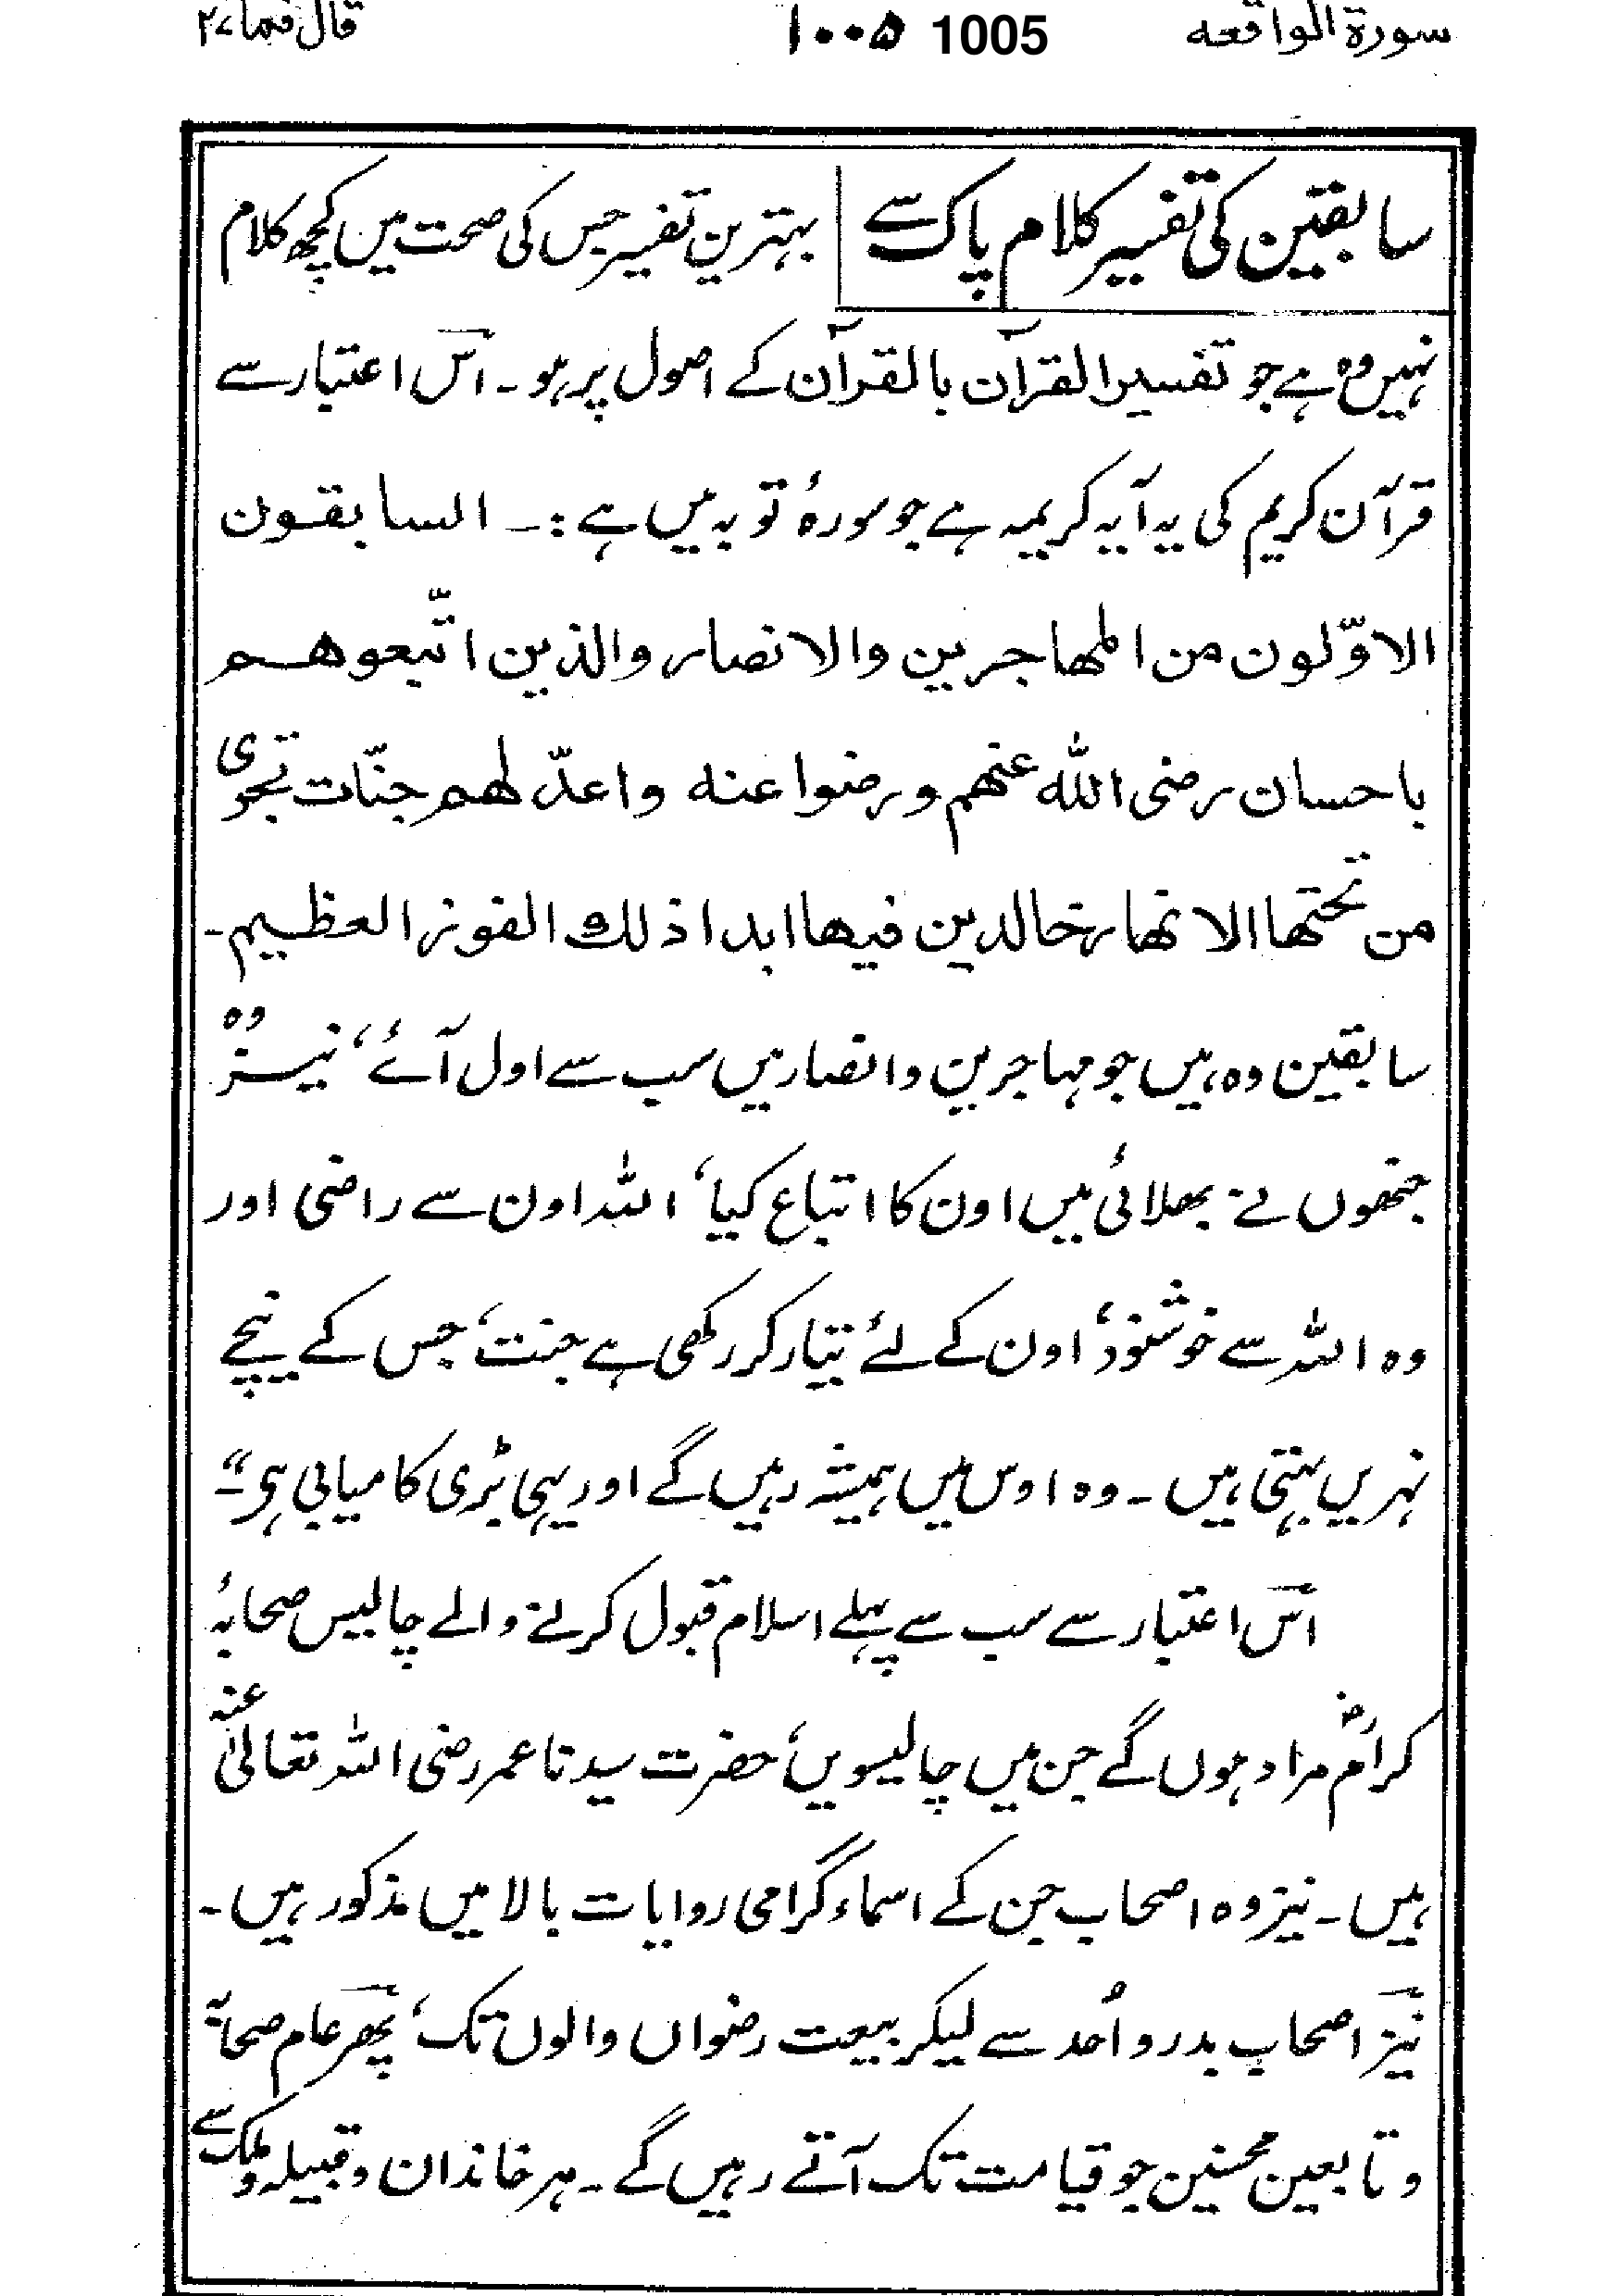 سورۃ الواقعہ 1005 ۱۰۰۵ قال فما ۲۷
سابقین کی تفسیر کلام پاک سے بہترین تفسیر جس کی صحت میں کچھ کلام
نہیں وہ ہے جو تفسیر القرآن بالقرآن کے اصول پر ہو۔ اس اعتبار سے
قرآن کریم کی یہ آیہ کریمہ ہے جو سورۂ توبہ میں ہے :۔ السابقون
الاوّلون من المھاجرین والانصار والذین اتّبعوھم
باحسان رضی اللہ عنھم ورضوا عنہ واعدّ لھم جنّات تجری
من تحتھا الانھار خالدین فیھا ابدا ذلک الفوز العظیم۔
سابقین وہ ہیں جو مہاجرین وانصار میں سب سے اول آئے، نیز وہ
جنھوں نے بھلائی میں اون کا اتباع کیا، اللہ اون سے راضی اور
وہ اللہ سے خوشنود، اون کے لئے تیار کر رکھی ہے جنت، جس کے نیچے
نہریں بہتی ہیں۔ وہ اوس میں ہمیشہ رہیں گے اور یہی بڑی کامیابی ہی"۔
اس اعتبار سے سب سے پہلے اسلام قبول کرنے والے چالیس صحابۂ
کرامؓ مراد ہوں گے جن میں چالیسویں، حضرت سیدنا عمر رضی اللہ تعالیٰ عنہ
ہیں۔ نیز وہ اصحاب جن کے اسماء گرامی روایات بالا میں مذکور ہیں۔
نیز اصحاب بدر و اُحد سے لیکر بیعت رضواں والوں تک، پھر عام صحابہؓ
و تابعین محسنین جو قیامت تک آتے رہیں گے۔ ہر خاندان و قبیلہ و ملک سے